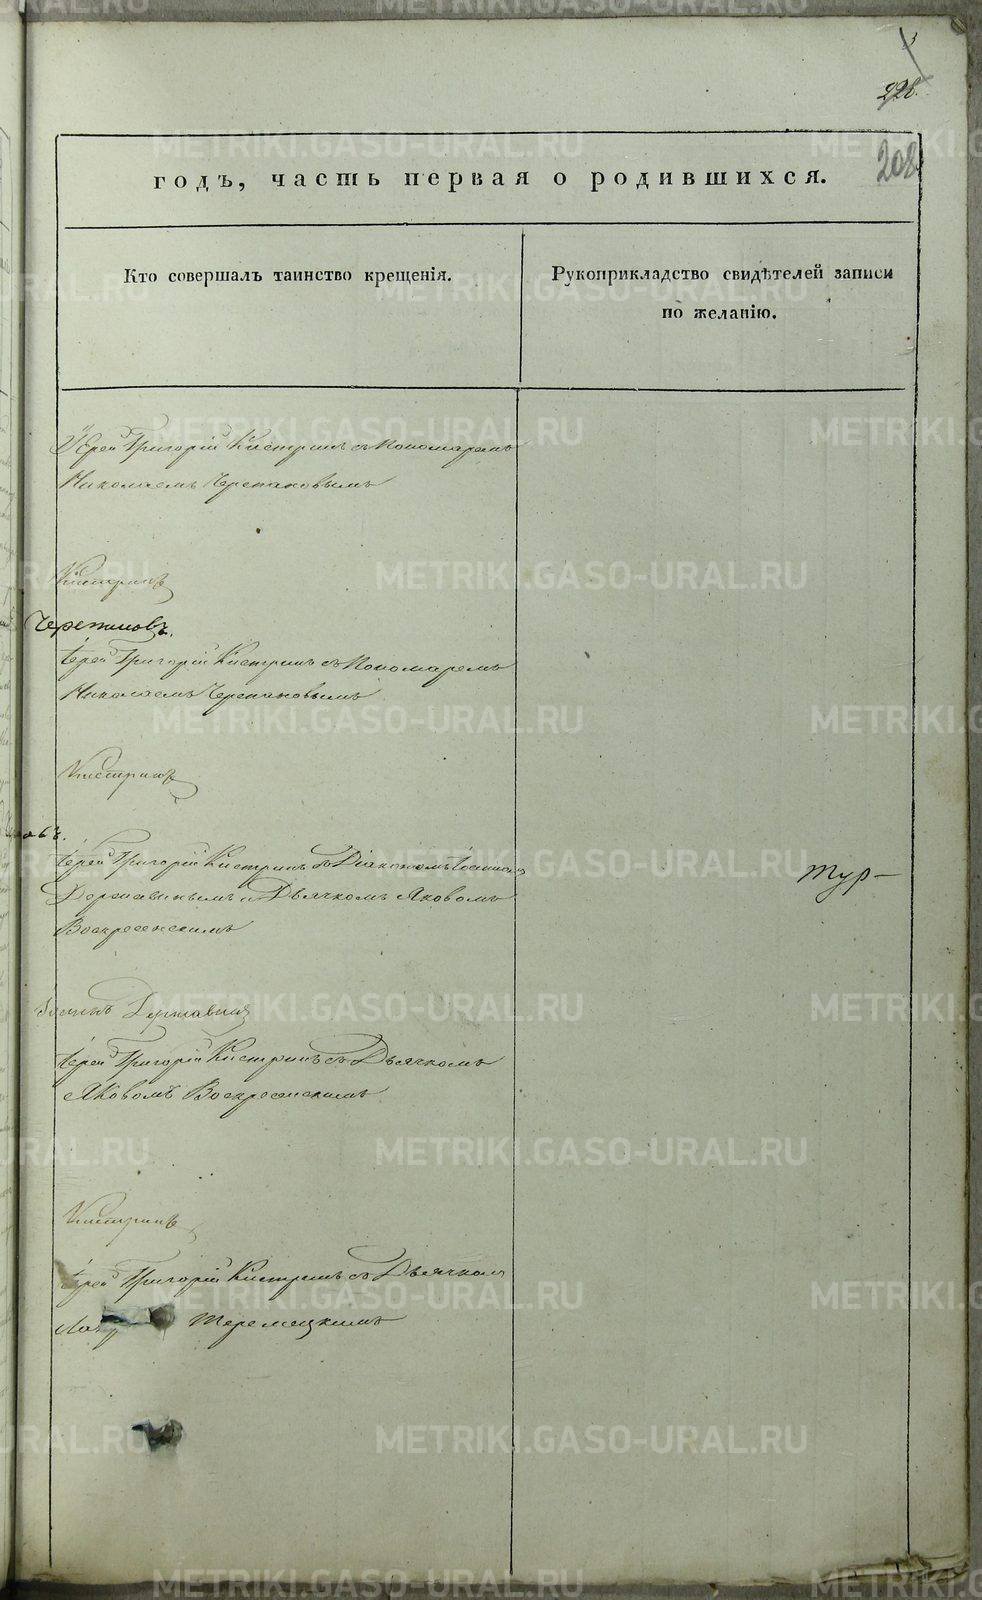 228.
208
годъ, часть первая о родившихся.
Кто совершалъ таинство крещенія.
Рукоприкладство свидѣтелей записи
по желанію.
Іерей Григорій Кистринъ съ Пономаремъ
Николаемъ Черепановымъ
Кистринъ
Іерей Григорій Кистринъ съ Пономаремъ
Николаемъ Черепановымъ
Кистринъ
Іерей Григорій Кистринъ съ Діакономъ Іоанномъ
Державинымъ и Дьячкомъ Яковомъ
Воскресенскимъ
тур-
Державинъ
Іерей Григорій Кистринъ съ Дьячкомъ
Яковомъ Воскресенскимъ
Кистринъ
Іерей Григорій Кистринъ съ Дьячком
Теремецкимъ
METRIKI.GASO-URAL.RU